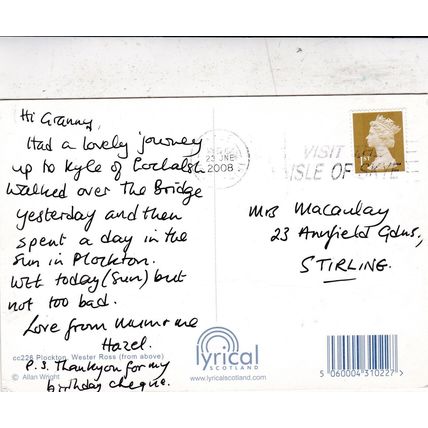 Hi Granny,
Had a lovely journey
up to Kyle of Lochalsh
Walked over The Bridge
yesterday and then
spent a day in the
sun in Plockton.
Wet today (sun) but
not too bad.
Love from Mum & me
Hazel.
P.S. Thankyou for my
birthday cheque.
cc228 Plockton, Wester Ross (from above)
© Allan Wright
lyrical
SCOTLAND
www.lyricalscotland.com
23 JNE
2008
VISIT
ISLE OF SKYE
Mrs Macaulay
23 Annfield Gdns,
STIRLING.
5 060004 310227 >